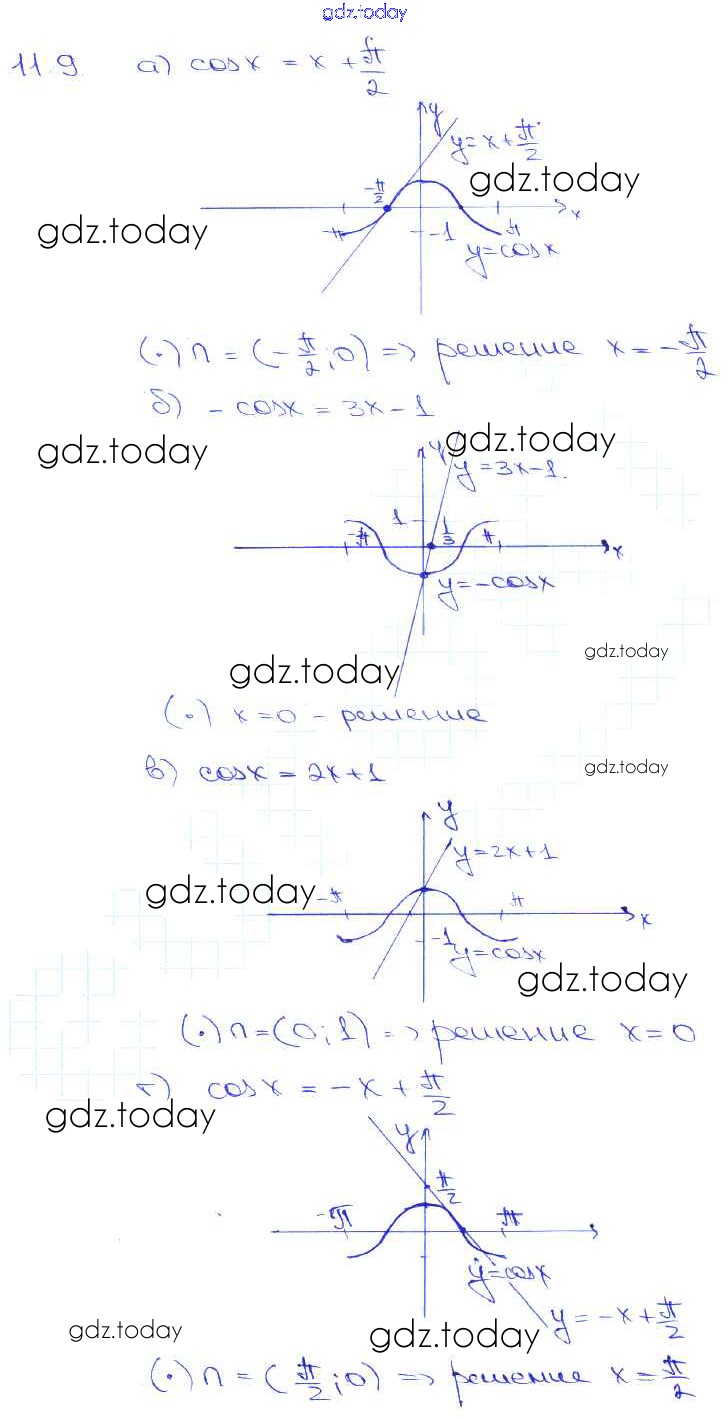 gdz.today
11.9. а) cos x = x + π/2
y
y = x + π/2
gdz.today
-π/2
gdz.today
x
-π
-1
π
y = cos x
(·) П = (-π/2; 0) => решение x = -π/2
б) - cos x = 3x - 1
gdz.today
gdz.today
y
y = 3x - 1.
1
1/3
-π
π
x
y = - cos x
gdz.today
gdz.today
(·) x = 0 - решение
в) cos x = 2x + 1
gdz.today
y
y = 2x + 1
gdz.today
-π
π
x
-1
y = cos x
gdz.today
(·) П = (0; 1) => решение x = 0
г) cos x = - x + π/2
gdz.today
y
π/2
-π
π
y = cos x
y = - x + π/2
gdz.today
gdz.today
(·) П = (π/2; 0) => решение x = π/2